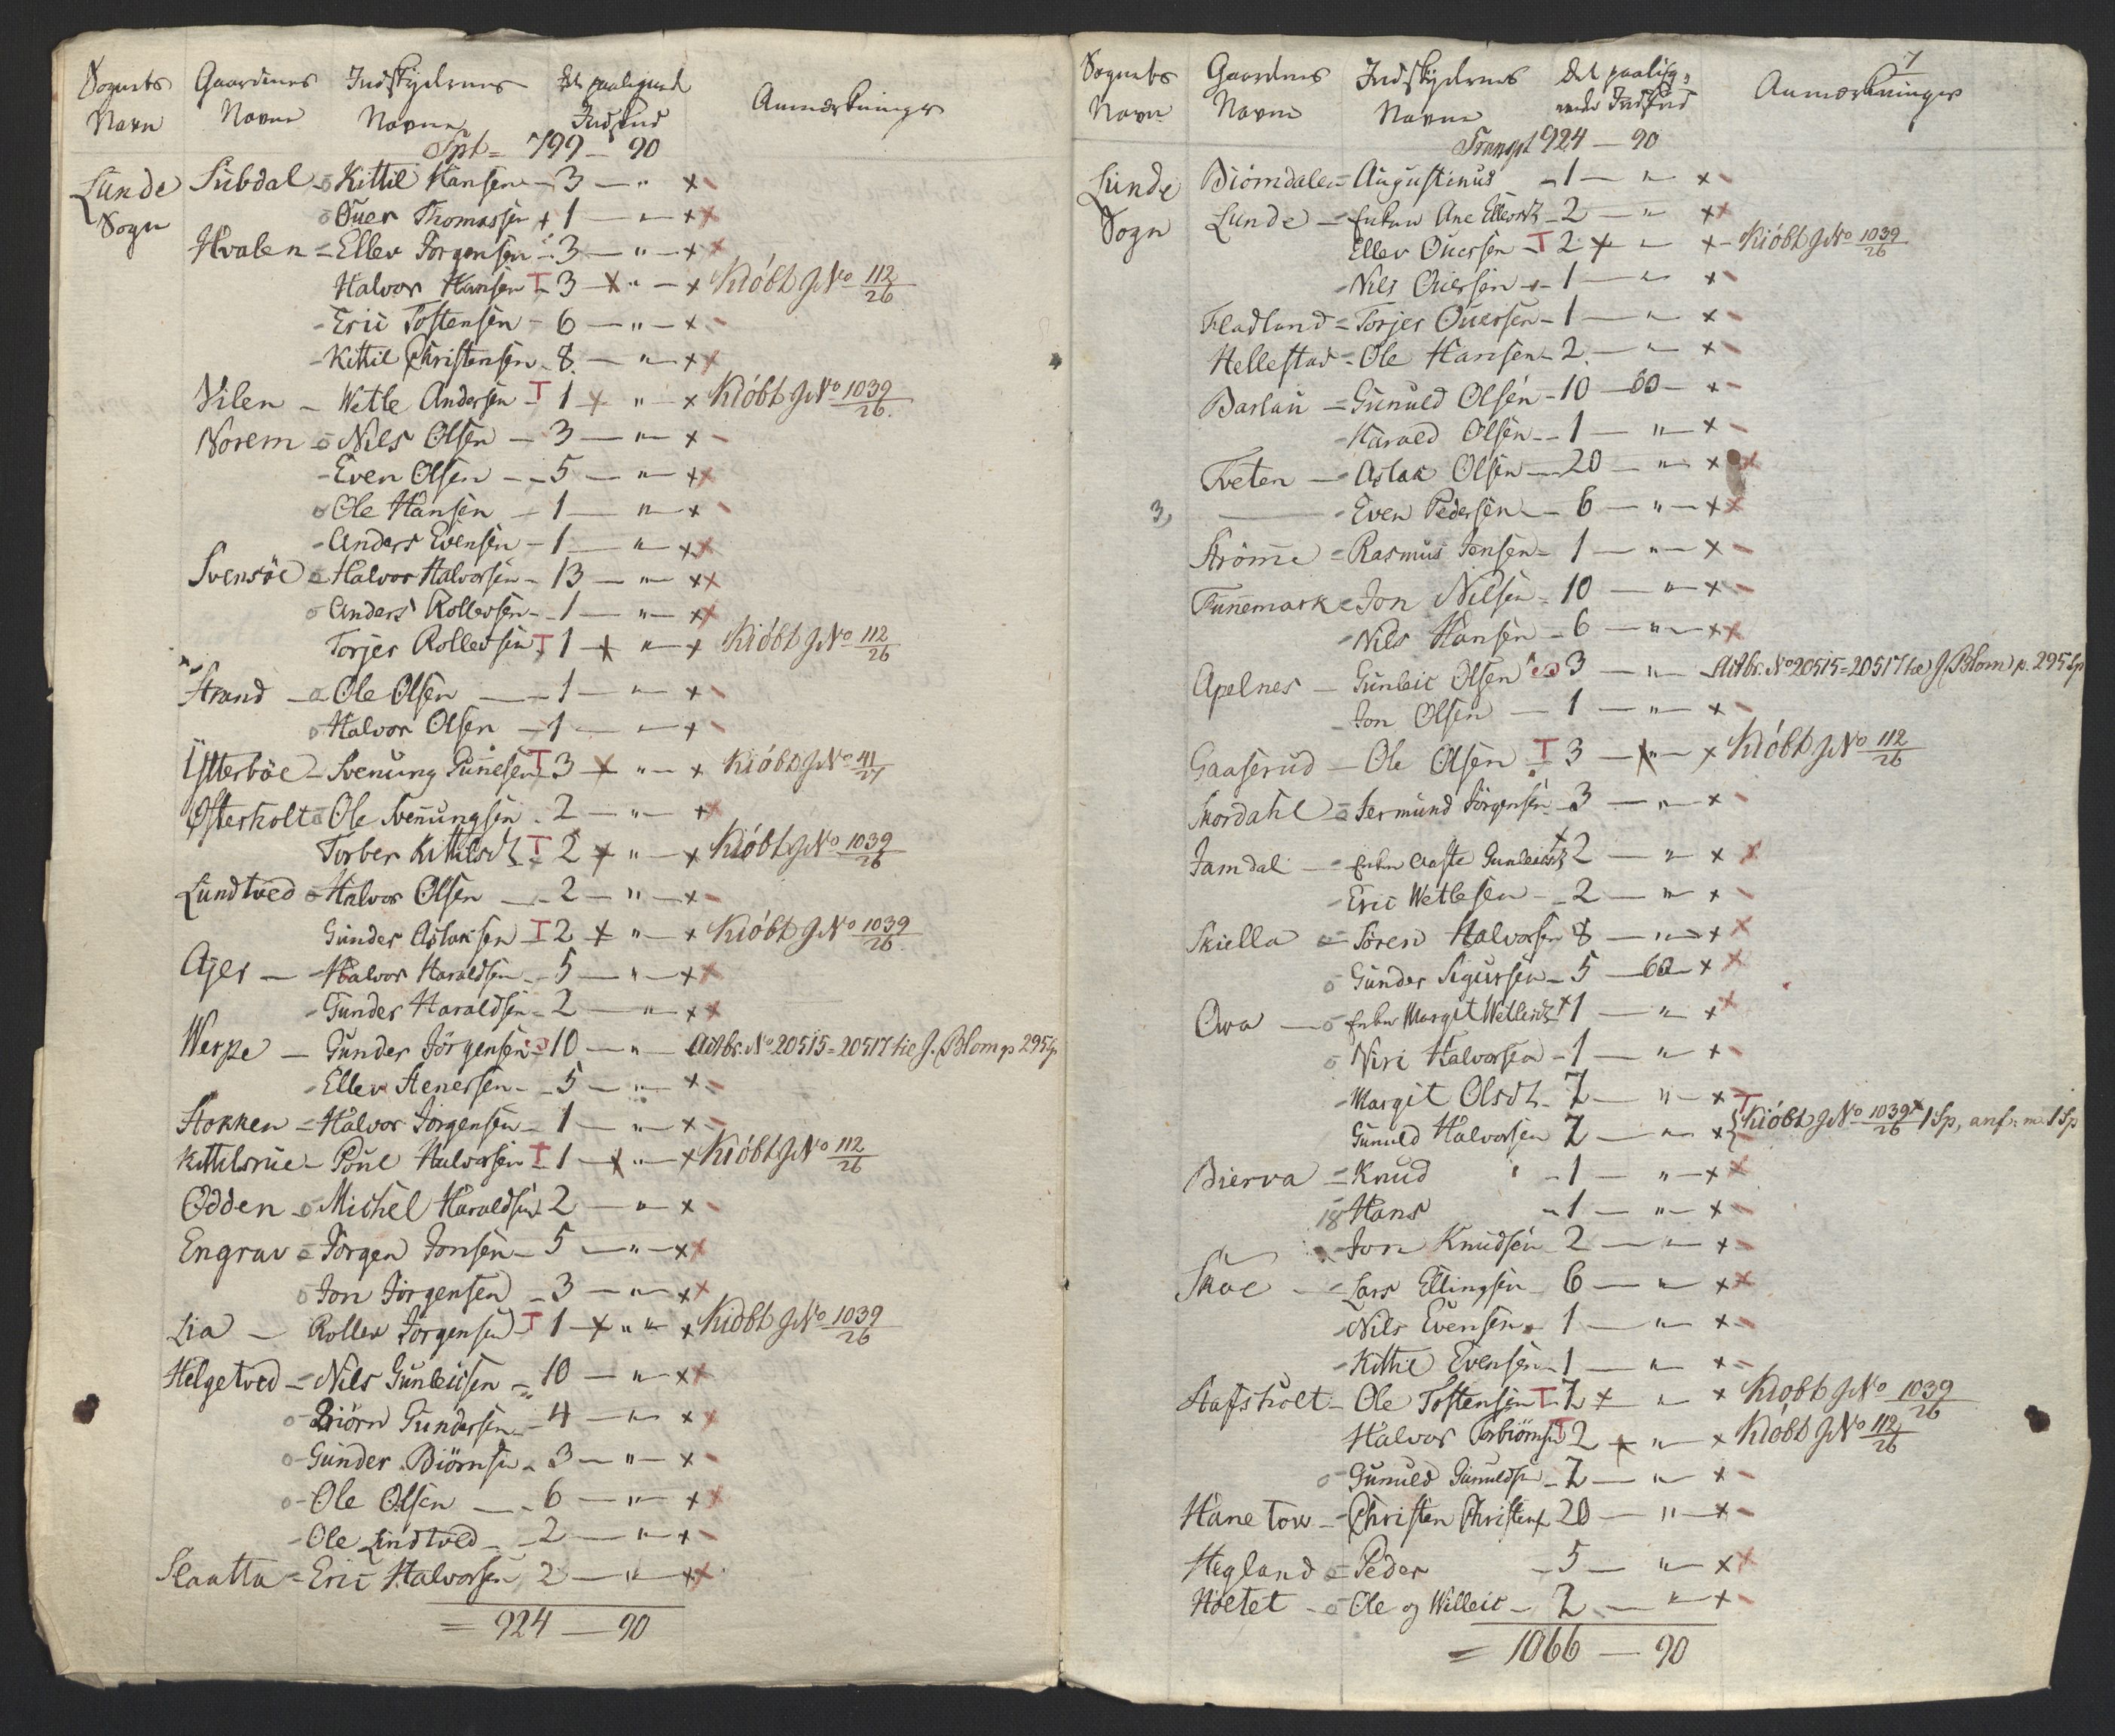 Sognets Gaardenes Indskydernes Det paaligned
Navn Navne Navne Indskud Anmærkninger
Tpt = 799 — 90
Lunde Subdal - Kittil Hansen - 3 — " x -
Sogn Over Thomassen + 1 — " x x
Hvalen = Ellev Jorgensen - 3 — " — x x
Halvor Hansen T - 3 — x " — x Kiöbt J No 112/26
- Eric Tostensen - 6 — " — x -
- Kittil Christensen - 8 — " — x x
Vilen - Wetle Andersen - T 1 x " — x Kiöbt J No 1039/26
Norem - Nils Olsen — 3 — " — x -
- Even Olsen — 5 — " — x x
Ole Hansen — 1 — " — x -
- Anders Evensen - 1 — " — x x
Svensöe - Halvor Halvorsen - 13 — " — x x
Anders Rollevsen - 1 — " — x x
Torjer Rollevsen T 1 x " — x Kiöbt J No 112/26
Strand - Ole Olsen — 1 — " — x -
Halvor Olsen - 1 — " — x -
Ytterböe - Svenung Gunesen T 3 x " — x Kiöbt J No 41/27
Österholt Ole Svenungsen - 2 — " — x x
Torber Kittilsdt T 2 x " — x Kiöbt J No 1039/26
Lundtved - Halvor Olsen — 2 — " — x -
Gunder Aslaksen T 2 x " — x Kiöbt J No 1039/26
Ajer — Halvor Haraldsen - 5 — " — x x
- Gunder Haraldsen - 2 — " — x x
Werpe — Gunder Jörgensen - 10 — " — Actbr. No 20515 = 20517 til J. Blom p 295 Sp
- Ellev Stenersen - 5 — " — x -
Stokken = Halvor Jorgensen - 1 — " — x -
Kittilsrue - Poul Halvorsen T - 1 — x " — x Kiöbt J No 112/26
Odden - Michel Haraldsen 2 — " — x -
Engrav = Jorgen Jonsen - 5 — " — x x
Jon Jörgensen - 3 — " — x x
Lia — Rollev Jorgensen T 1 — x " " x Kiöbt J No 1039/26
Helgetved - Nils Gunleicsen - 10 — " — x x
Biörn Gundersen - 4 — " — x x
- Gunder Biörnsen - 3 — " — x -
- Ole Olsen — 6 — " — x x
- Ole Lindtved - 2 — " — x -
Slaatta = Eric Halvorsen 2 — " — x x
= 924 — 90
7
Sognets Gaardenes Indskydernes Det paalig-
Navn Navne Navne nede Indskud Anmærkninger
Transpt 924 — 90
Lunde Biörndalen = Augustinus - 1 — " — x -
Sogn Lunde - Enken Ane Ellevsdt - 2 — " x x
Ellev Oversen - T 2 x — " x - Kiöbt J No 1039/26
- Nils Oversen - 1 — " x -
Fladland = Torjer Oversen - 1 — " x -
Hellestad - Ole Hansen - 2 — " x -
Barlau = Gunuld Olsen - 10 — 60 — x -
- Harald Olsen - 1 — " — x -
Tveten — Aslak Olsen — 20 — " — x x
3, — - Even Pedersen — 6 — " — x x
Strömme = Rasmus Jensen - 1 — " — x -
Tunemark = Jon Nilsen - 10 — " x -
- Nils Hansen - 6 — " — x x
Apelnes — Gunleic Olsen 3 — " — Actbr. No 20515 = 20517 til J. Blom p. 295 Sp
- Jon Olsen — 1 — " — x -
Gaaserud — Ole Olsen T 3 — x " — x Kiöbt J No 112/26
Mordahl - Jermund Jörgensen - 3 — " — x -
Jamdal - Enken Aaste Gunleicsdt 2 — " x x
- Eric Wetlesen - 2 — " x -
Skiella - Sören Halvorsen 8 — " — x x
Gunder Sigursen - 5 — 60 — x x
Owa - Enken Margit Wetlesdt 1 — " x x
Niri Halvorsen - 1 — " x -
- Margit Olsdt - 7 — " — x -
Gunuld Halvorsen 7 — " — x { T Kiöbt J No 1039/26 1 Sp, anf: m 1 Sp
Bierva = Knud - 1 — " — x x
18 Hans - 1 — " — x -
- Jon Knudsen - 2 — " x -
Skoe - Lars Ellingsen - 6 — " x x
- Nils Evensen - 1 — " x -
- Kittil Evensen - 1 — " x -
Stafsholt - Ole Tostensen T 7 x " x Kiöbt J No 1039/26
Halvor Torbiörnsen T 2 x " — x Kiöbt J No 112/26
- Gunuld Gunuldsen - 7 — " x -
Hane tow - Christen Christens 20 — " — x -
Hegland = Peder - 5 — " x x
Höltet - Ole og Willeic - 2 — " x -
= 1066 — 90